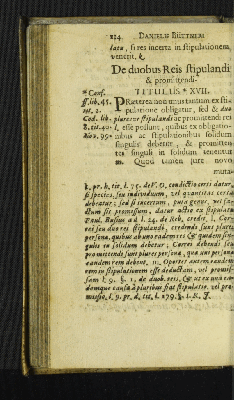 234 DANIELIS BÜTTNERI
lata, si res incerta in stipulationem
venerit. k.
De duobus Reis stipulandi
& promittendi.
TITULUS * XVII.
* Conf. PRæterea non unus tantum ex sti-
ff. lib. 45. pulatione obligatur, sed & duo
tit. 2. pluresve stipulandi ac promittendi rei
Cod. lib. l. esse possunt, quibus ex obligatio-
8. tit. 40. nibus ac stipulationibus solidum
Nov. 99. singulis debetur, & promitten-
tes singuli in solidum tenentur
m. Quod tamen jure novo
muta-
k. pr. h. tit. l. 75. de V. O. condictio certi datur,
si species, seu individuum, vel quantitas certa
debeatur; sed si incertum, puta genus, vel fa-
ctum sit promissum, datur actio ex stipulatu
Paul. Busius ad l. 24. de Reb. credit. l. Cor-
rei seu duo rei stipulandi, credendi sunt plures
personæ, quibus ab uno eadem res & quidem sin-
gulis in solidum debetur; Correi debendi seu
promittendi, sunt plures personæ, quæ uni personæ
eandem rem debent. m. Oportet autem eandem
rem in stipulationem esse deductam, vel promis-
sam l. 9. §. 1. de duob. reis. & ut ex una ea-
demque causa à pluribus fiat stipulatio vel pro-
missio, l. 9. pr. d. tit. l.